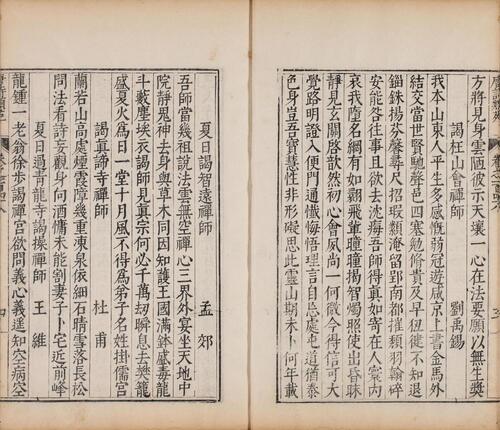 方將見身雲陋彼示天壤一心在法要願以無生奬
謁枉山會禪師
劉禹錫
我本山東人平生多感慨弱冠遊咸京上書金馬外
結交當世賢馳聲在四塞勉修貴及早狃徒不知退
錙銖揚芬馨尋尺招瑕纇淹留郢南都摧頽羽翰碎
安能咎往事且欲去沈痗吾師得真如寄在人寰内
哀我墮名網有如翾飛輩曈曈揭智燭照使出昏昧
靜見玄關啓歆然初心會夙尚一何微今得信可大
覺路明證入便門通懺悔悟理言自忘處屯道猶泰
色身豈吾寶慧性非形礙思此靈山期未卜何年載
夏日謁智遠禪師
孟郊
吾師當幾祖說法雲無空禪心三界外宴坐天地中
院靜鬼神去身與草木同因知護王國滿鉢盛毒龍
斗藪塵埃衣謁師見真宗何必千萬刼瞬息去樊籠
盛夏火爲日一堂十月風不得爲弟子名姓掛儒宫
謁真諦寺禪師
杜甫
蘭若山高處煙霞障幾重凍泉依細石晴雪落長松
問法看詩妄觀身向酒慵未能割妻子卜宅近前峰
夏日過青龍寺謁操禪師
王維
龍鍾一老翁徐步謁禪宫欲問義心義遥知空病空